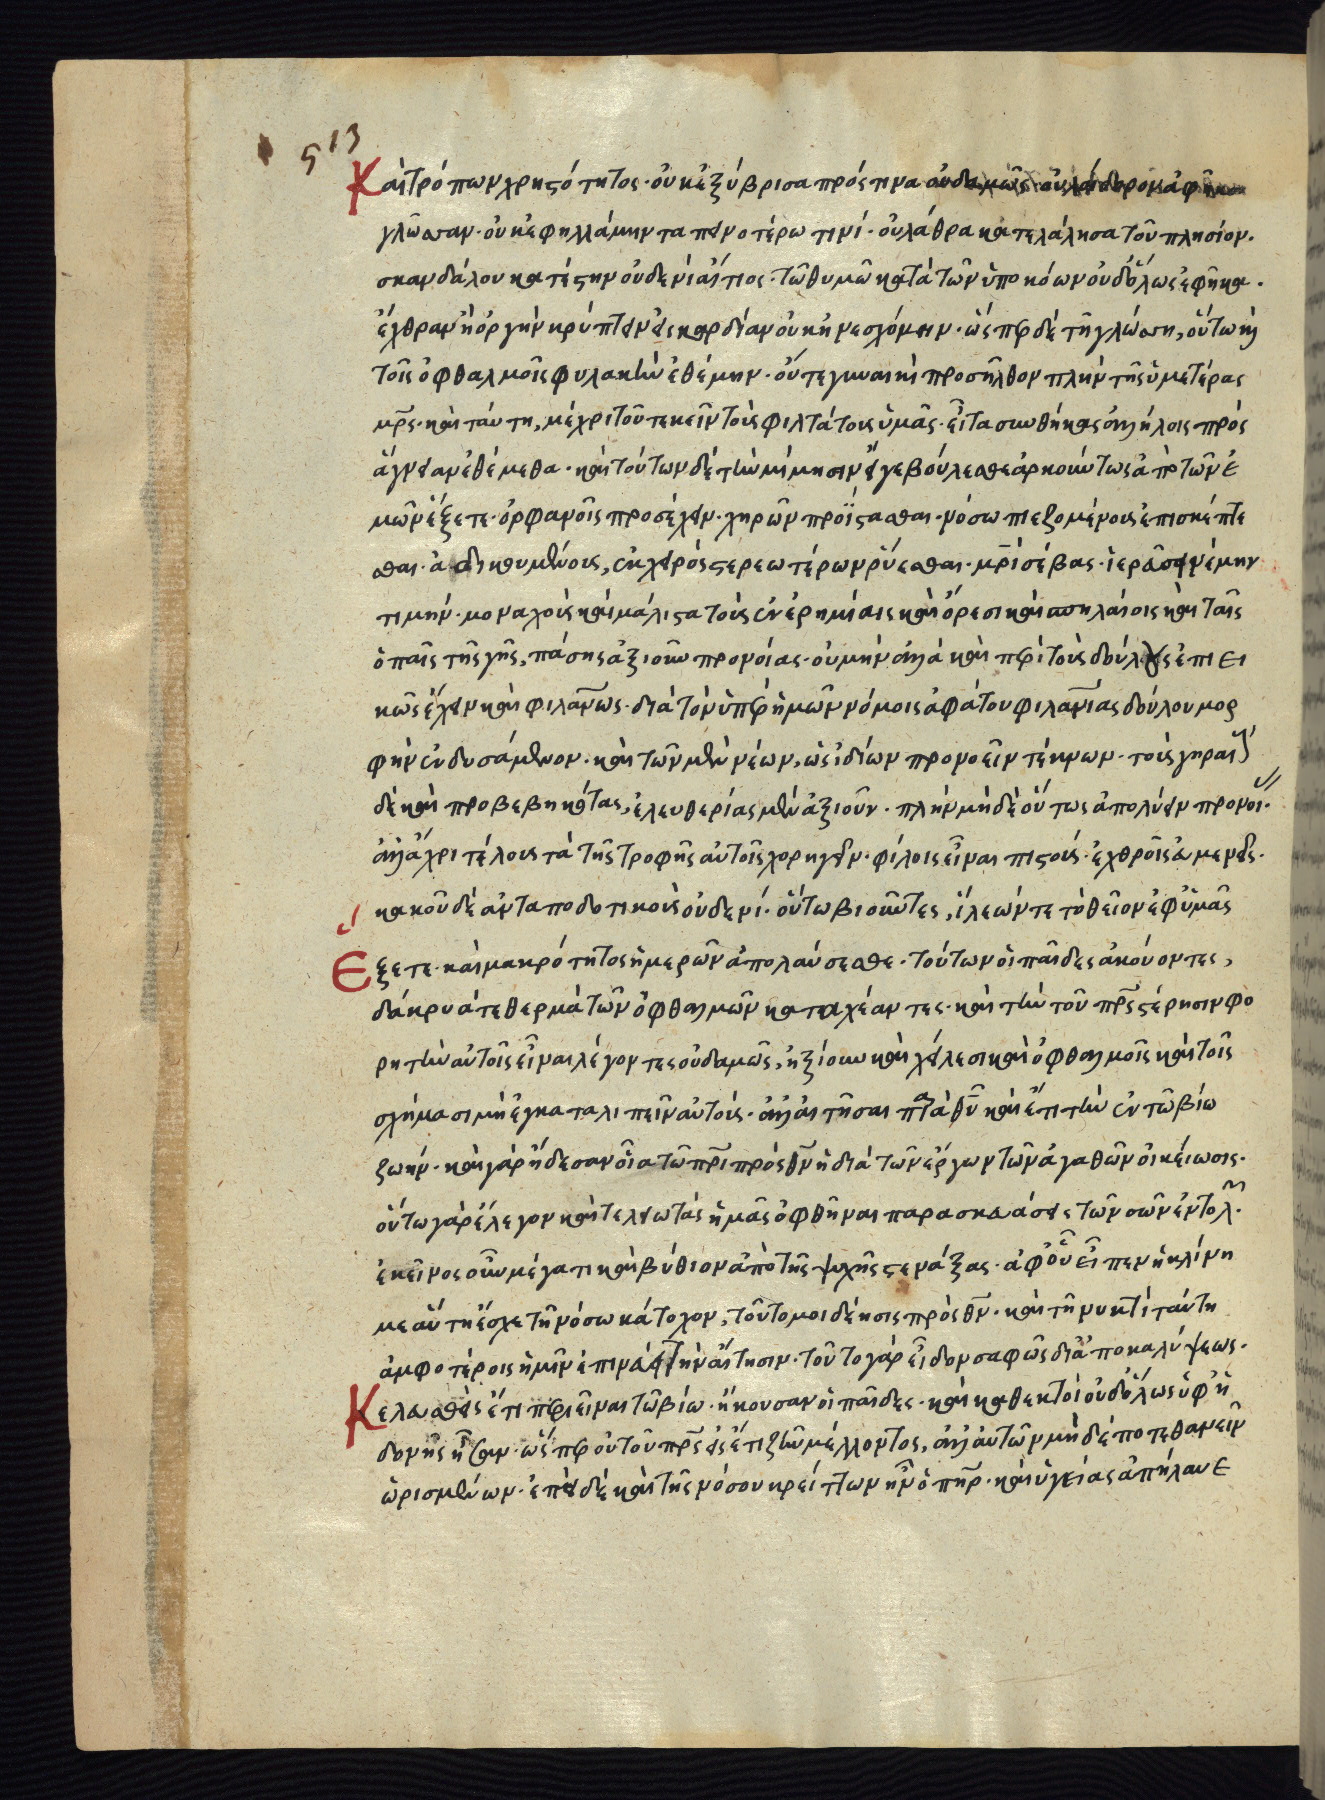 513
Καὶ τρόπων χρηστότητος· οὐκ ἐξύβρισα πρός τινα οὐδαμῶς· οὐ λοίδορον ἀφῆκα
γλῶσσαν· οὐκ ἐφηλλάμην ταπεινοτέρω τινί· οὐ λάθρα κατελάλησα τοῦ πλησίον·
σκανδάλου κατέστην οὐδενὶ αἴτιος· τῶ θυμῶ κατὰ τῶν ὑποκόων οὐδόλως ἐφῆκα·
ἔχθραν ἢ ὀργὴν κρύπτειν εἰς καρδίαν οὐκ ἠνεσχόμην· ὥσπερ δὲ τῆ γλώσση, οὕτω καὶ
τοῖς ὀφθαλμοῖς φυλακὴν ἐθέμην· οὔτε γυναικὶ προσῆλθον πλὴν τῆς ὑμετέρας
μρς· καὶ ταύτη, μέχρι τοῦ τεκεῖν τοὺς φιλτάτους ὑμᾶς· εἶτα συνθήκας ἀλλήλοις πρὸς
ἁγνείαν ἐθέμεθα· καὶ τούτων δὲ τὴν μίμησιν εἴγε βούλεσθε ἀρκούντως ἀπὸ τῶν ἐ
μῶν ἕξετε· ὀρφανοῖς προσέχειν· χηρῶν προΐστασθαι· νόσω πιεζομένους ἐπισκέπτε
σθαι· ἀδικουμένους, ἐκ χειρὸς στερεωτέρων ῥύεσθαι·
τιμήν· μοναχοὺς καὶ μάλιστα τοὺς ἐν ἐρημίαις καὶ ὄρεσι καὶ σπηλαίοις καὶ ταῖς
ὀπαῖς τῆς γῆς, πάσης ἀξιοῦν προνοίας· οὐ μὴν ἀλλὰ καὶ περὶ τοὺς δούλους ἐπιει
κῶς ἔχειν καὶ φιλανως· διὰ τὸν ὑπὲρ ἡμῶν νόμοις ἀφάτου φιλανίας δούλου μορ
φὴν ἐνδυσάμενον· καὶ τῶν μὲν νέων, ὡς ἰδίων προνοεῖν τέκνων· τοὺς γηραι
δὲ καὶ προβεβηκότας, ἐλευθερίας μὲν ἀξιοῦν· πλὴν μὴ δὲ οὕτως ἀπολύειν προνοι·
ἀλλ' ἄχρι τέλους τὰ τῆς τροφῆς αὐτοῖς χορηγεῖν· φίλοις εἶναι πιστούς· ἐχθροῖς εὐμενεῖς·
κακοῦ δὲ ἀνταποδοτικοὺς οὐδενί· οὕτω βιοῦντες, ἵλεών τε τὸ θεῖον ἐφ' ὑμᾶς
Ἕξετε· καὶ μακρότητος ἡμερῶν ἀπολαύσεσθε· τούτων οἱ παῖδες ἀκούοντες,
δάκρυά τε θερμὰ τῶν ὀφθαλμῶν καταχέαντες· καὶ τὴν τοῦ πρς στέρησιν φο
ρητὴν αὐτοῖς εἶναι λέγοντες οὐδαμῶς, ἠξίουν καὶ χείλεσι καὶ ὀφθαλμοῖς καὶ τοῖς
σχήμασι μὴ ἐγκαταλιπεῖν αὐτούς· ἀλλ' αἰτῆσαι παρὰ θυ καὶ ἔτι τὴν ἐν τῶ βίω
ζωήν· καὶ γὰρ ἤδεσαν οἵα τῶ πρι πρὸς θν ἡ διὰ τῶν ἔργων τῶν ἀγαθῶν οἰκείωσις·
οὕτω γὰρ ἔλεγον καὶ τελειωτὰς ἡμᾶς ὀφθῆναι παρασκευάσεις τῶν σῶν ἐντολ·
ἐκεῖνος οὖν μέγα τι καὶ βύθιον ἀπὸ τῆς ψυχῆς στενάξας· ἀφ' οὗ εἶπεν ἡ κλίνη
με αὕτη ἔσχε τῆ νόσω κάτοχον, τοῦτο μοι δέησις πρὸς θν· καὶ τῆ νυκτὶ ταύτη
ἀμφοτέροις ἡμῖν ἐπινεύει τὴν αἴτησιν· τοῦτο γὰρ εἶδον σαφῶς δι' ἀποκαλύψεως·
Κελευσθεὶς ἔτι περιεῖναι τῶ βίω· ἤκουσαν οἱ παῖδες· καὶ καθεκτοὶ οὐδόλως ὑφ' ἡ
δονῆς ἦσαν· ὥσπερ οὐ τοῦ πρς εἰς ἔτι ζῆν μέλλοντος, ἀλλ' αὐτῶν μὴ δέποτε θανεῖν
ὡρισμένων· ἐπεὶ δὲ καὶ τῆς νόσου κρείττων ἦν ὁ πηρ· καὶ ὑγείας ἀπήλαυε